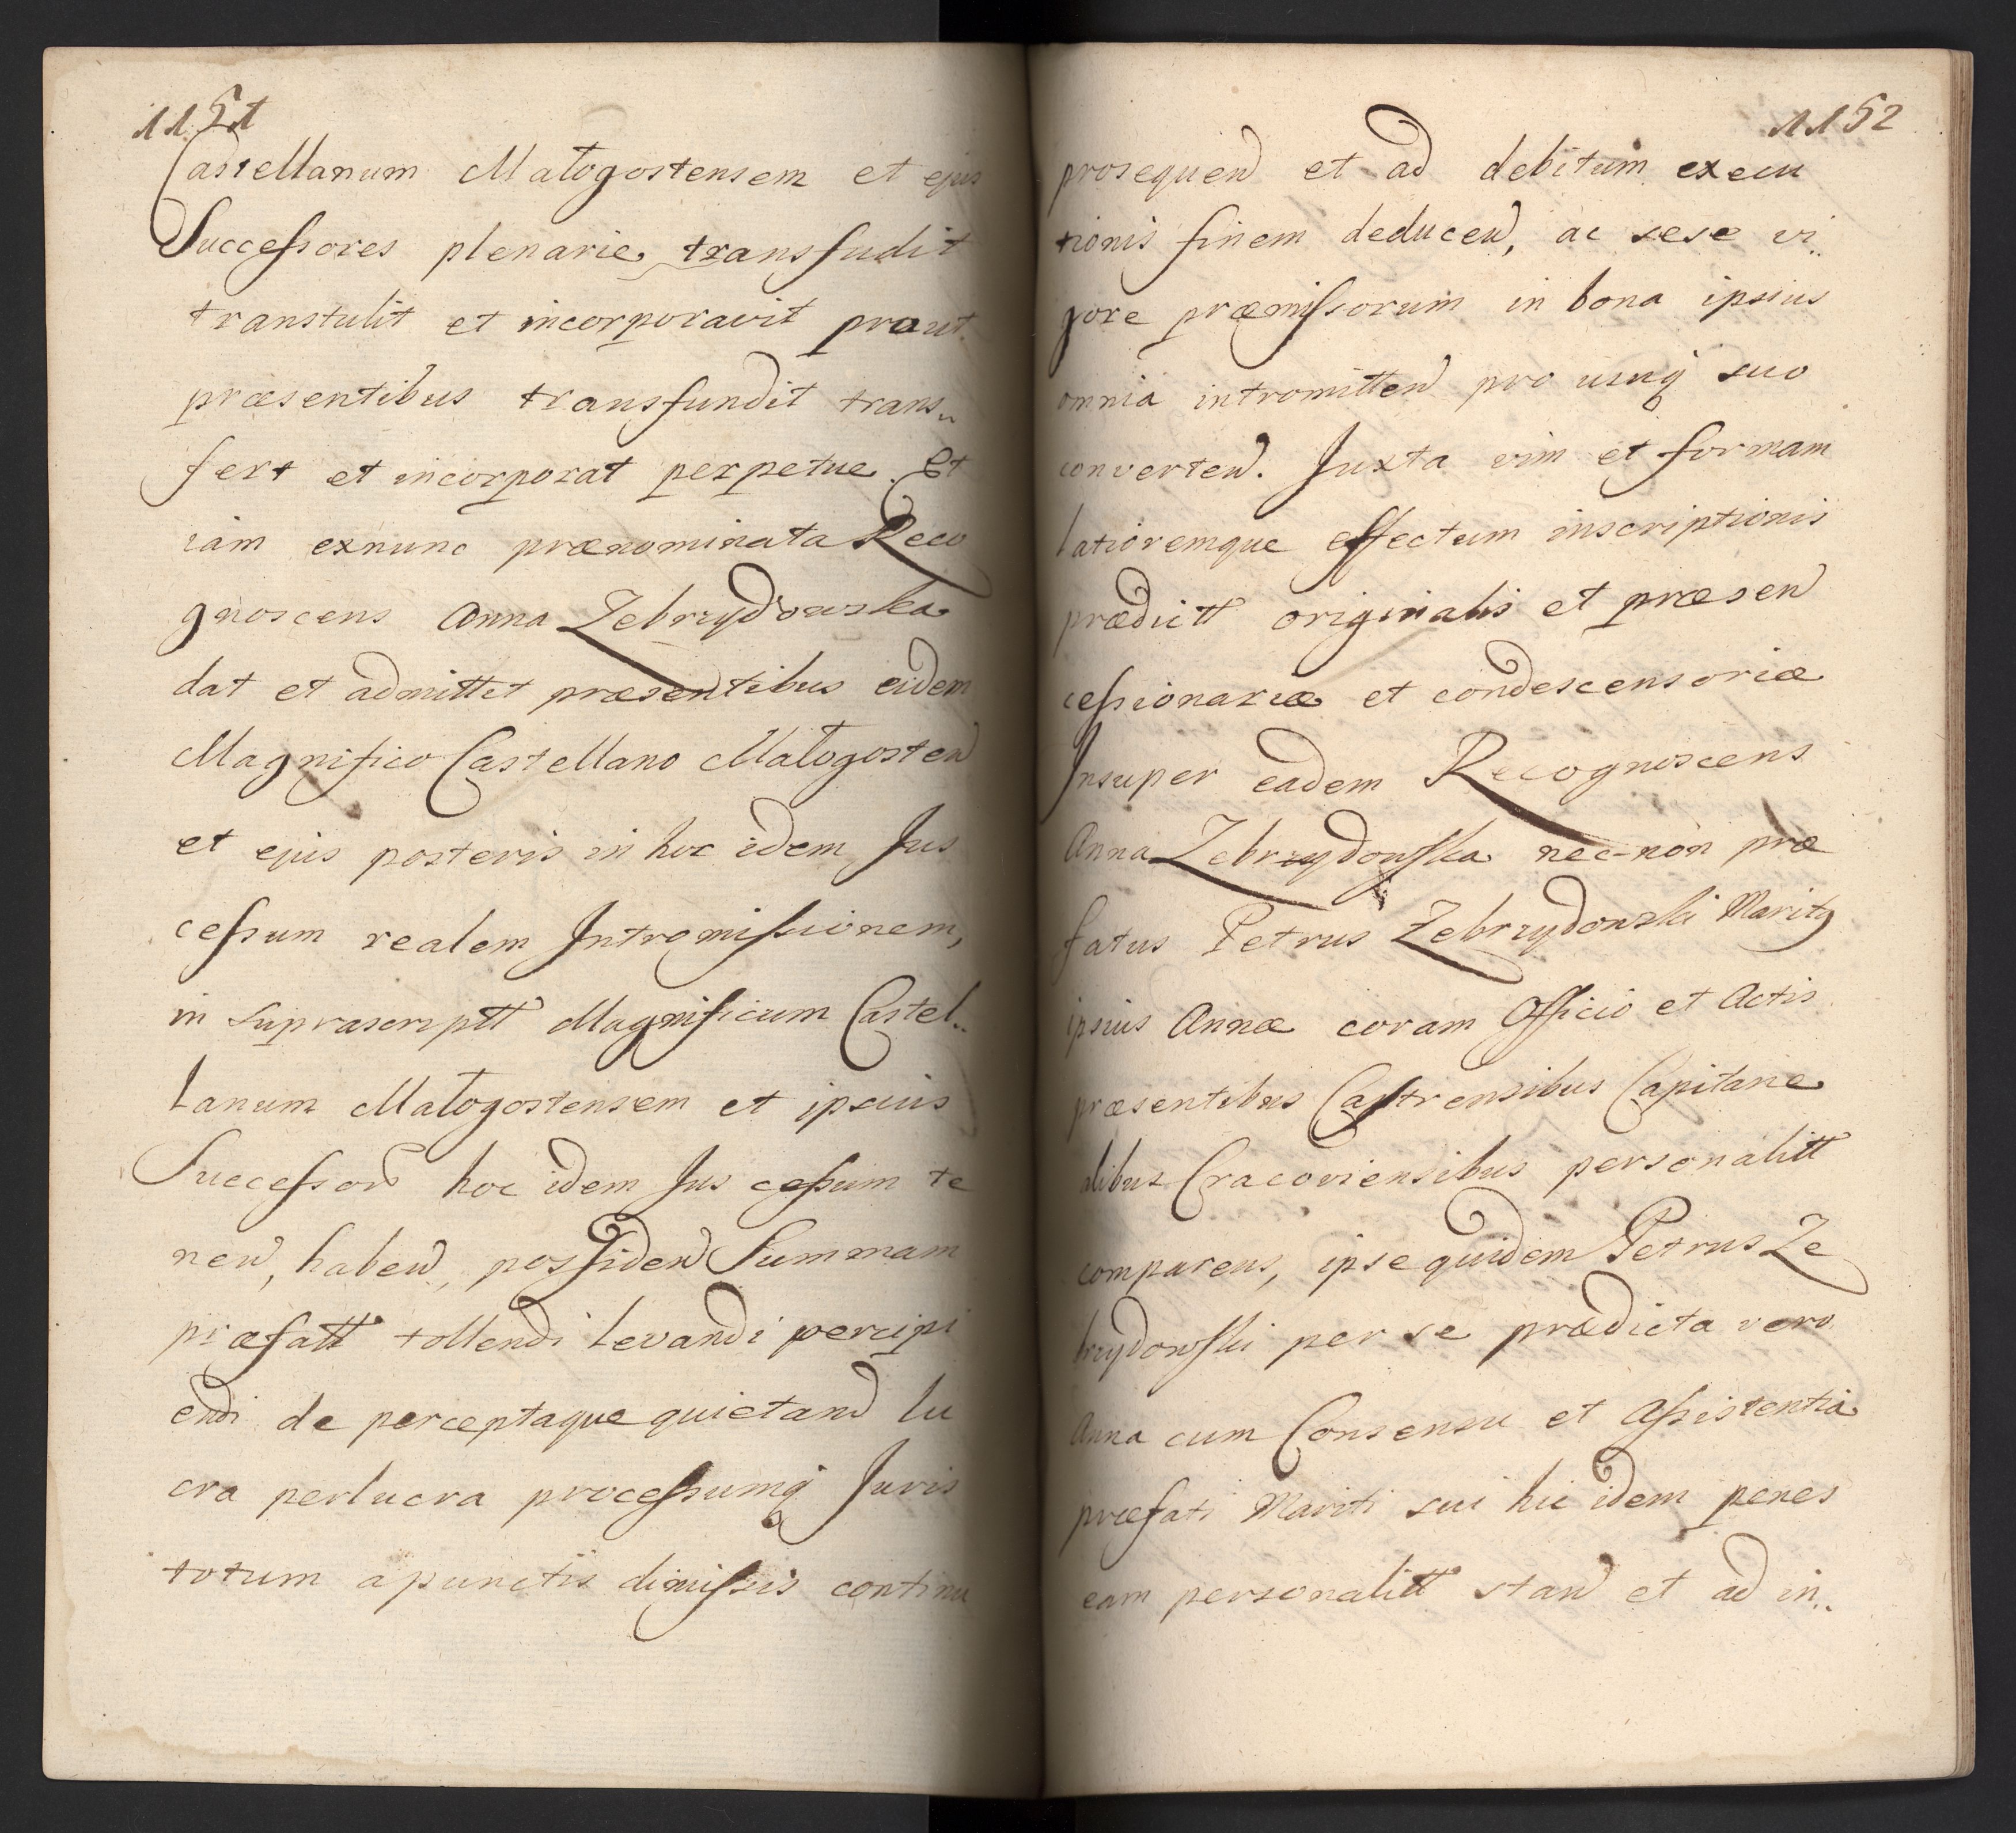 1151
Castellanum Małogostensem et ejus
Successores plenarie transfudit
transtulit et incorporavit prout
præsentibus transfundit trans„
fert et incorporat perpetue. Et
iam exnunc prænominata Reco
gnoscens Anna Zebrzydowska
dat et admittet præsentibus eidem
Magnifico Castellano Małogosten
et ejus posteris in hoc idem Jus
cessum realem Intromissionem,
in suprascriptt Magnificum Castel„
lanum Małogostensem et ipsius
Successor hoc idem Jus cessum te
nen, haben, possiden Summam
præfatt tollendi levandi percipi
endi de perceptaque quietand lu
cra perlucra processumq Juris
totum a punctis dimissis continu
1152
prosequen et ad debitum execu
tionis finem deducen, ac sese vi„
gore præmissorum in bona ipsius
omnia intromitten pro usuq suo
converten. Juxta vim et formam
latioremque effectum inscriptionis
prædictt originalis et præsen
cessionariæ et condescensoriæ
Insuper eadem Recognoscens
Anna Zebrzydowska nec-non præ
fatus Petrus Zebrzydowski Maritq
ipsius Annæ coram Officio et Actis
præsentibus Castrensibus Capitane
alibus Cracoviensibus personalitt
comparens, ipse quidem Petrus Ze
brzydowski per se prædicta vero
Anna cum Consensu et Assistentia
præfati Mariti sui hic idem penes
eam personalitt stan et ad in„